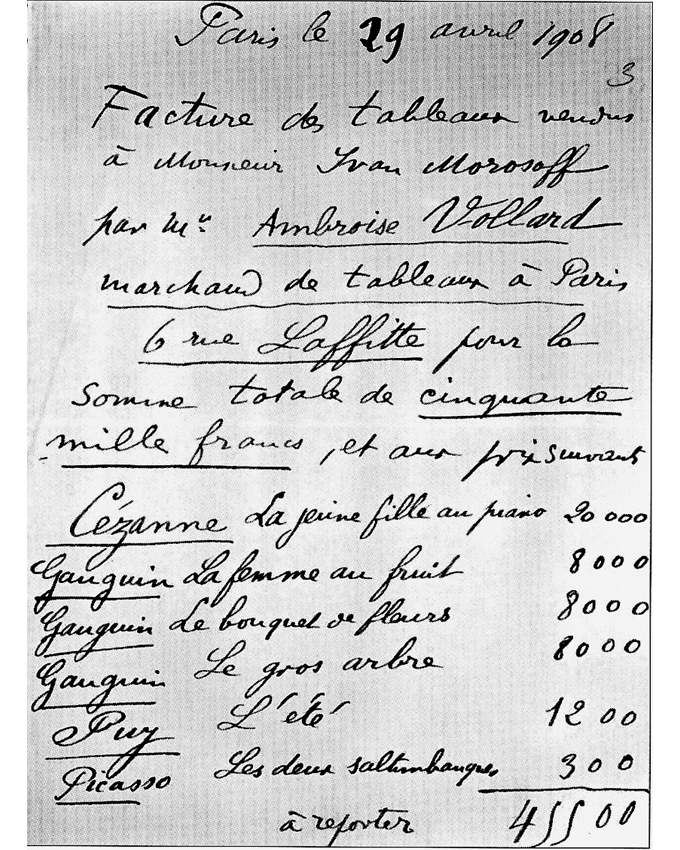 Paris le 29 avril 1908
3
Facture des tableaux vendus
à Monsieur Ivan Morosoff
par Mr Ambroise Vollard
marchand de tableaux à Paris
6 rue Laffitte pour la
somme totale de cinquante
mille francs, et aux prix suivants
Cézanne La jeune fille au piano 20 000
Gauguin La femme au fruit 8000
Gauguin Le bouquet de fleurs 8000
Gauguin Le gros arbre 8000
Puy L'été 1200
Picasso Les deux saltimbanques 300
à reporter 45500